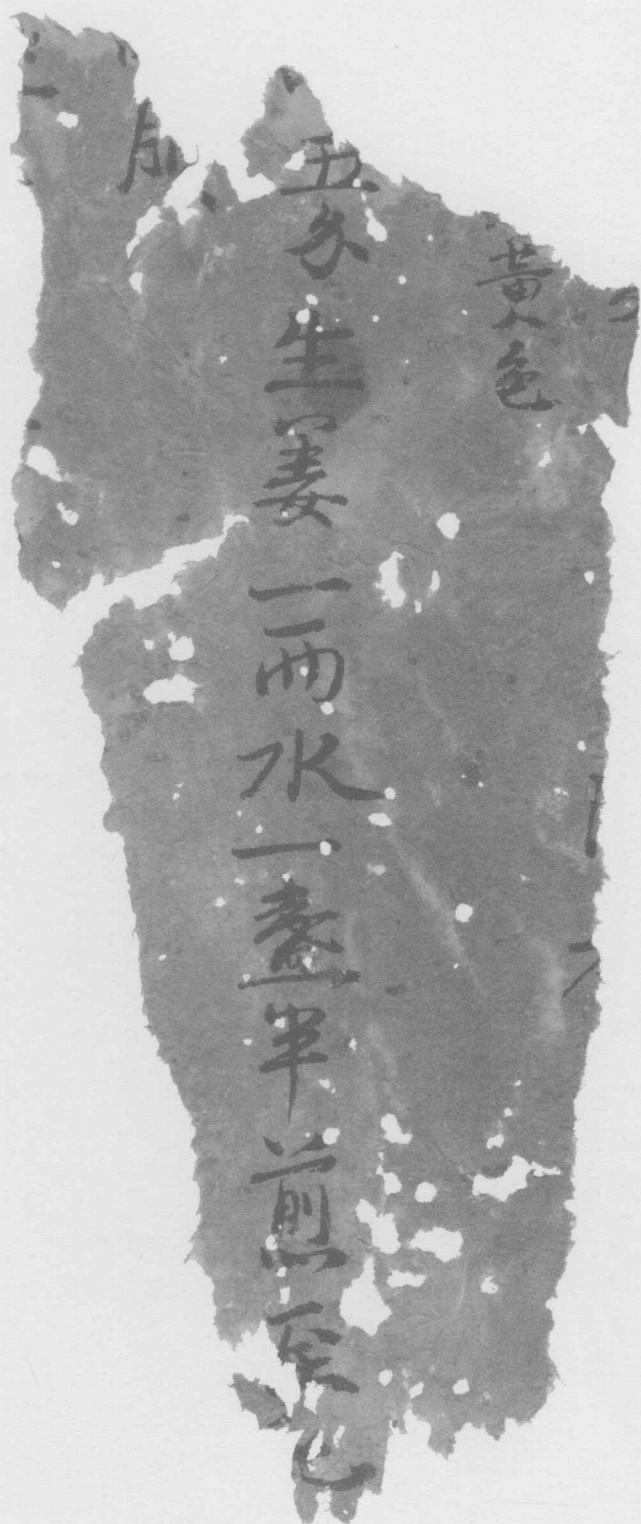 黃色
五分生姜一兩水一盞半煎至七